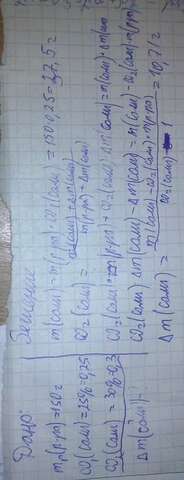 Дано:
m₁(р-ра)=150г
ω₁(соли)=25%=0,25
ω₂(соли)=30%=0,3
Δm(соли)-?
Решение
m(соли)=m(р-ра)·ω₁(соли)=150·0,25=37,5г
ω₂(соли)=m(соли)+Δm(соли)/m(р-ра)+Δm(соли)
ω₂(соли)·m(р-ра)+ω₂(соли)·Δm(соли)=m(соли)+Δm(соли)
ω₂(соли)·Δm(соли)-Δm(соли)=m(соли)-ω₂(соли)·m(р-ра)
Δm(соли)=m(соли)-ω₂(соли)·m(р-ра)/ω₂(соли)-1=10,71г